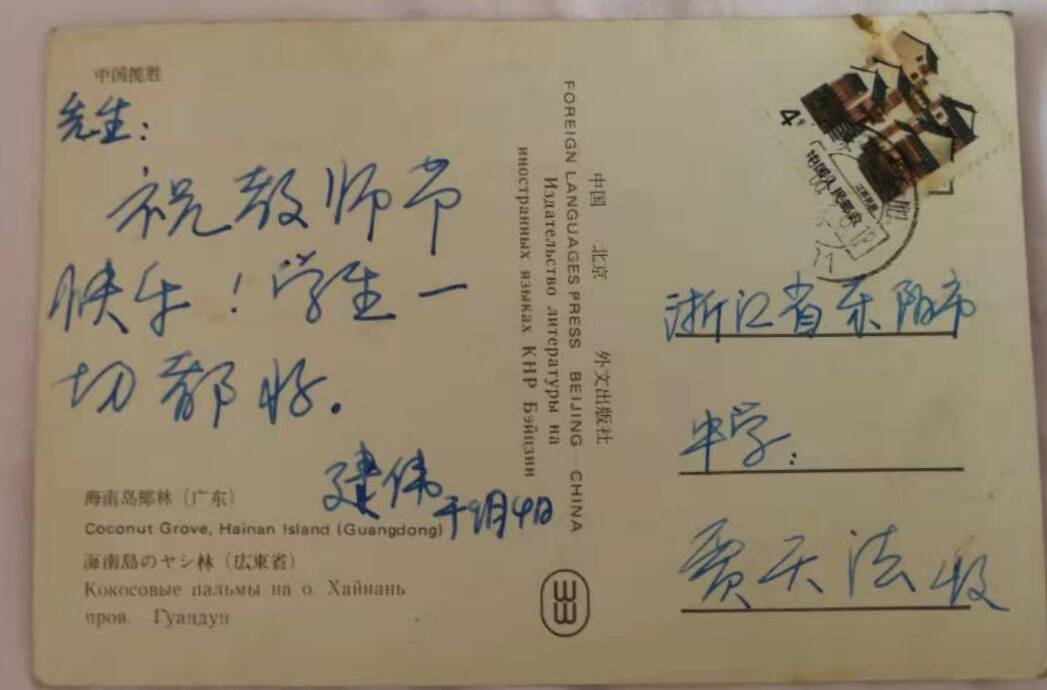 中国揽胜
先生：
祝教师节
快乐！学生一
切都好。
建伟
于9月4日
海南岛椰林（广东）
Coconut Grove, Hainan Island (Guangdong)
海南島のヤシ林（広東省）
Кокосовые пальмы на о. Хайнань
пров. Гуандун
中国 北京 外文出版社
FOREIGN LANGUAGES PRESS BEIJING CHINA
Издательство литературы на
иностранных языках КНР Бэйцзин
4
中国人民邮政
浙江省东阳市
中学：
贾天法收